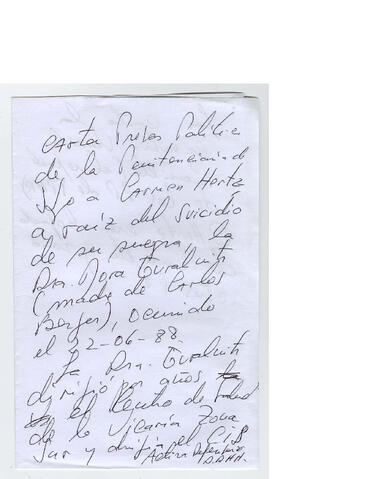 Carta Presos Políticos
de la Penitenciaria de
Stgo a Carmen Hertz
a raíz del suicidio
de su suegra, la
Dra. Dora Guralnik
(madre de Carlos
Berger), ocurrido
el 22-06-88.
La Dra. Guralnik
dirigió por años
el Centro de Salud
de la Vicaría Zona
Sur y dirigía el
Activa Defensora
DDHH.